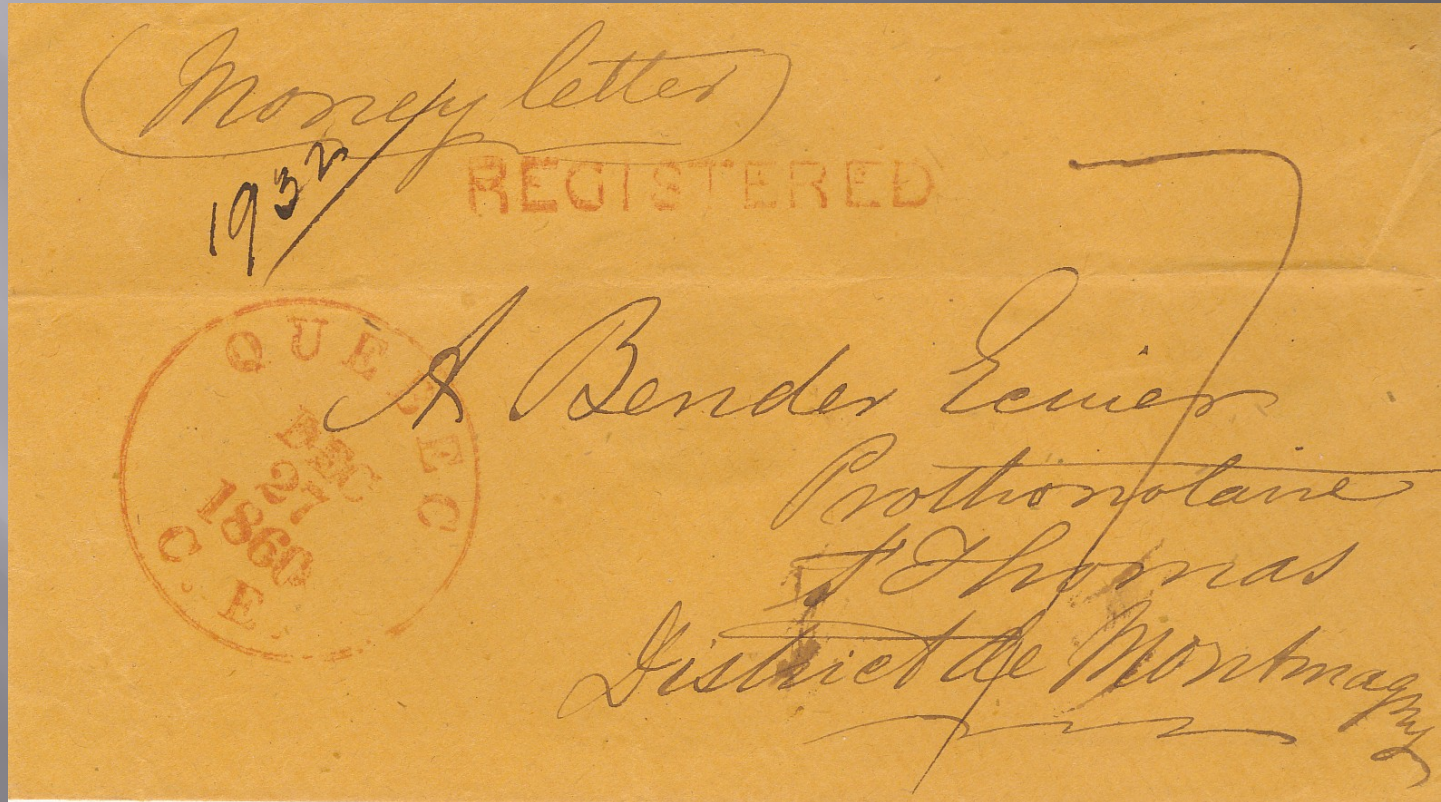 Money letter
REGISTERED
1932
7
QUEBEC
DEC
27
1860
C. E.
A Bender Ecuier
Prothonotaire
St Thomas
District de Montmagny